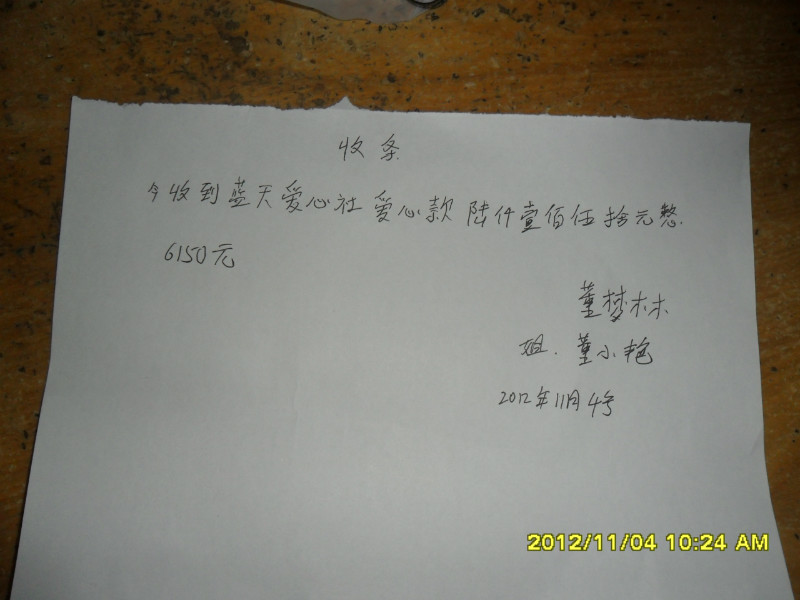 收条
今收到蓝天爱心社爱心款陆仟壹佰伍拾元整.
6150元
董梦林
姐.董小艳
2012年11月4号
2012/11/04 10:24 AM